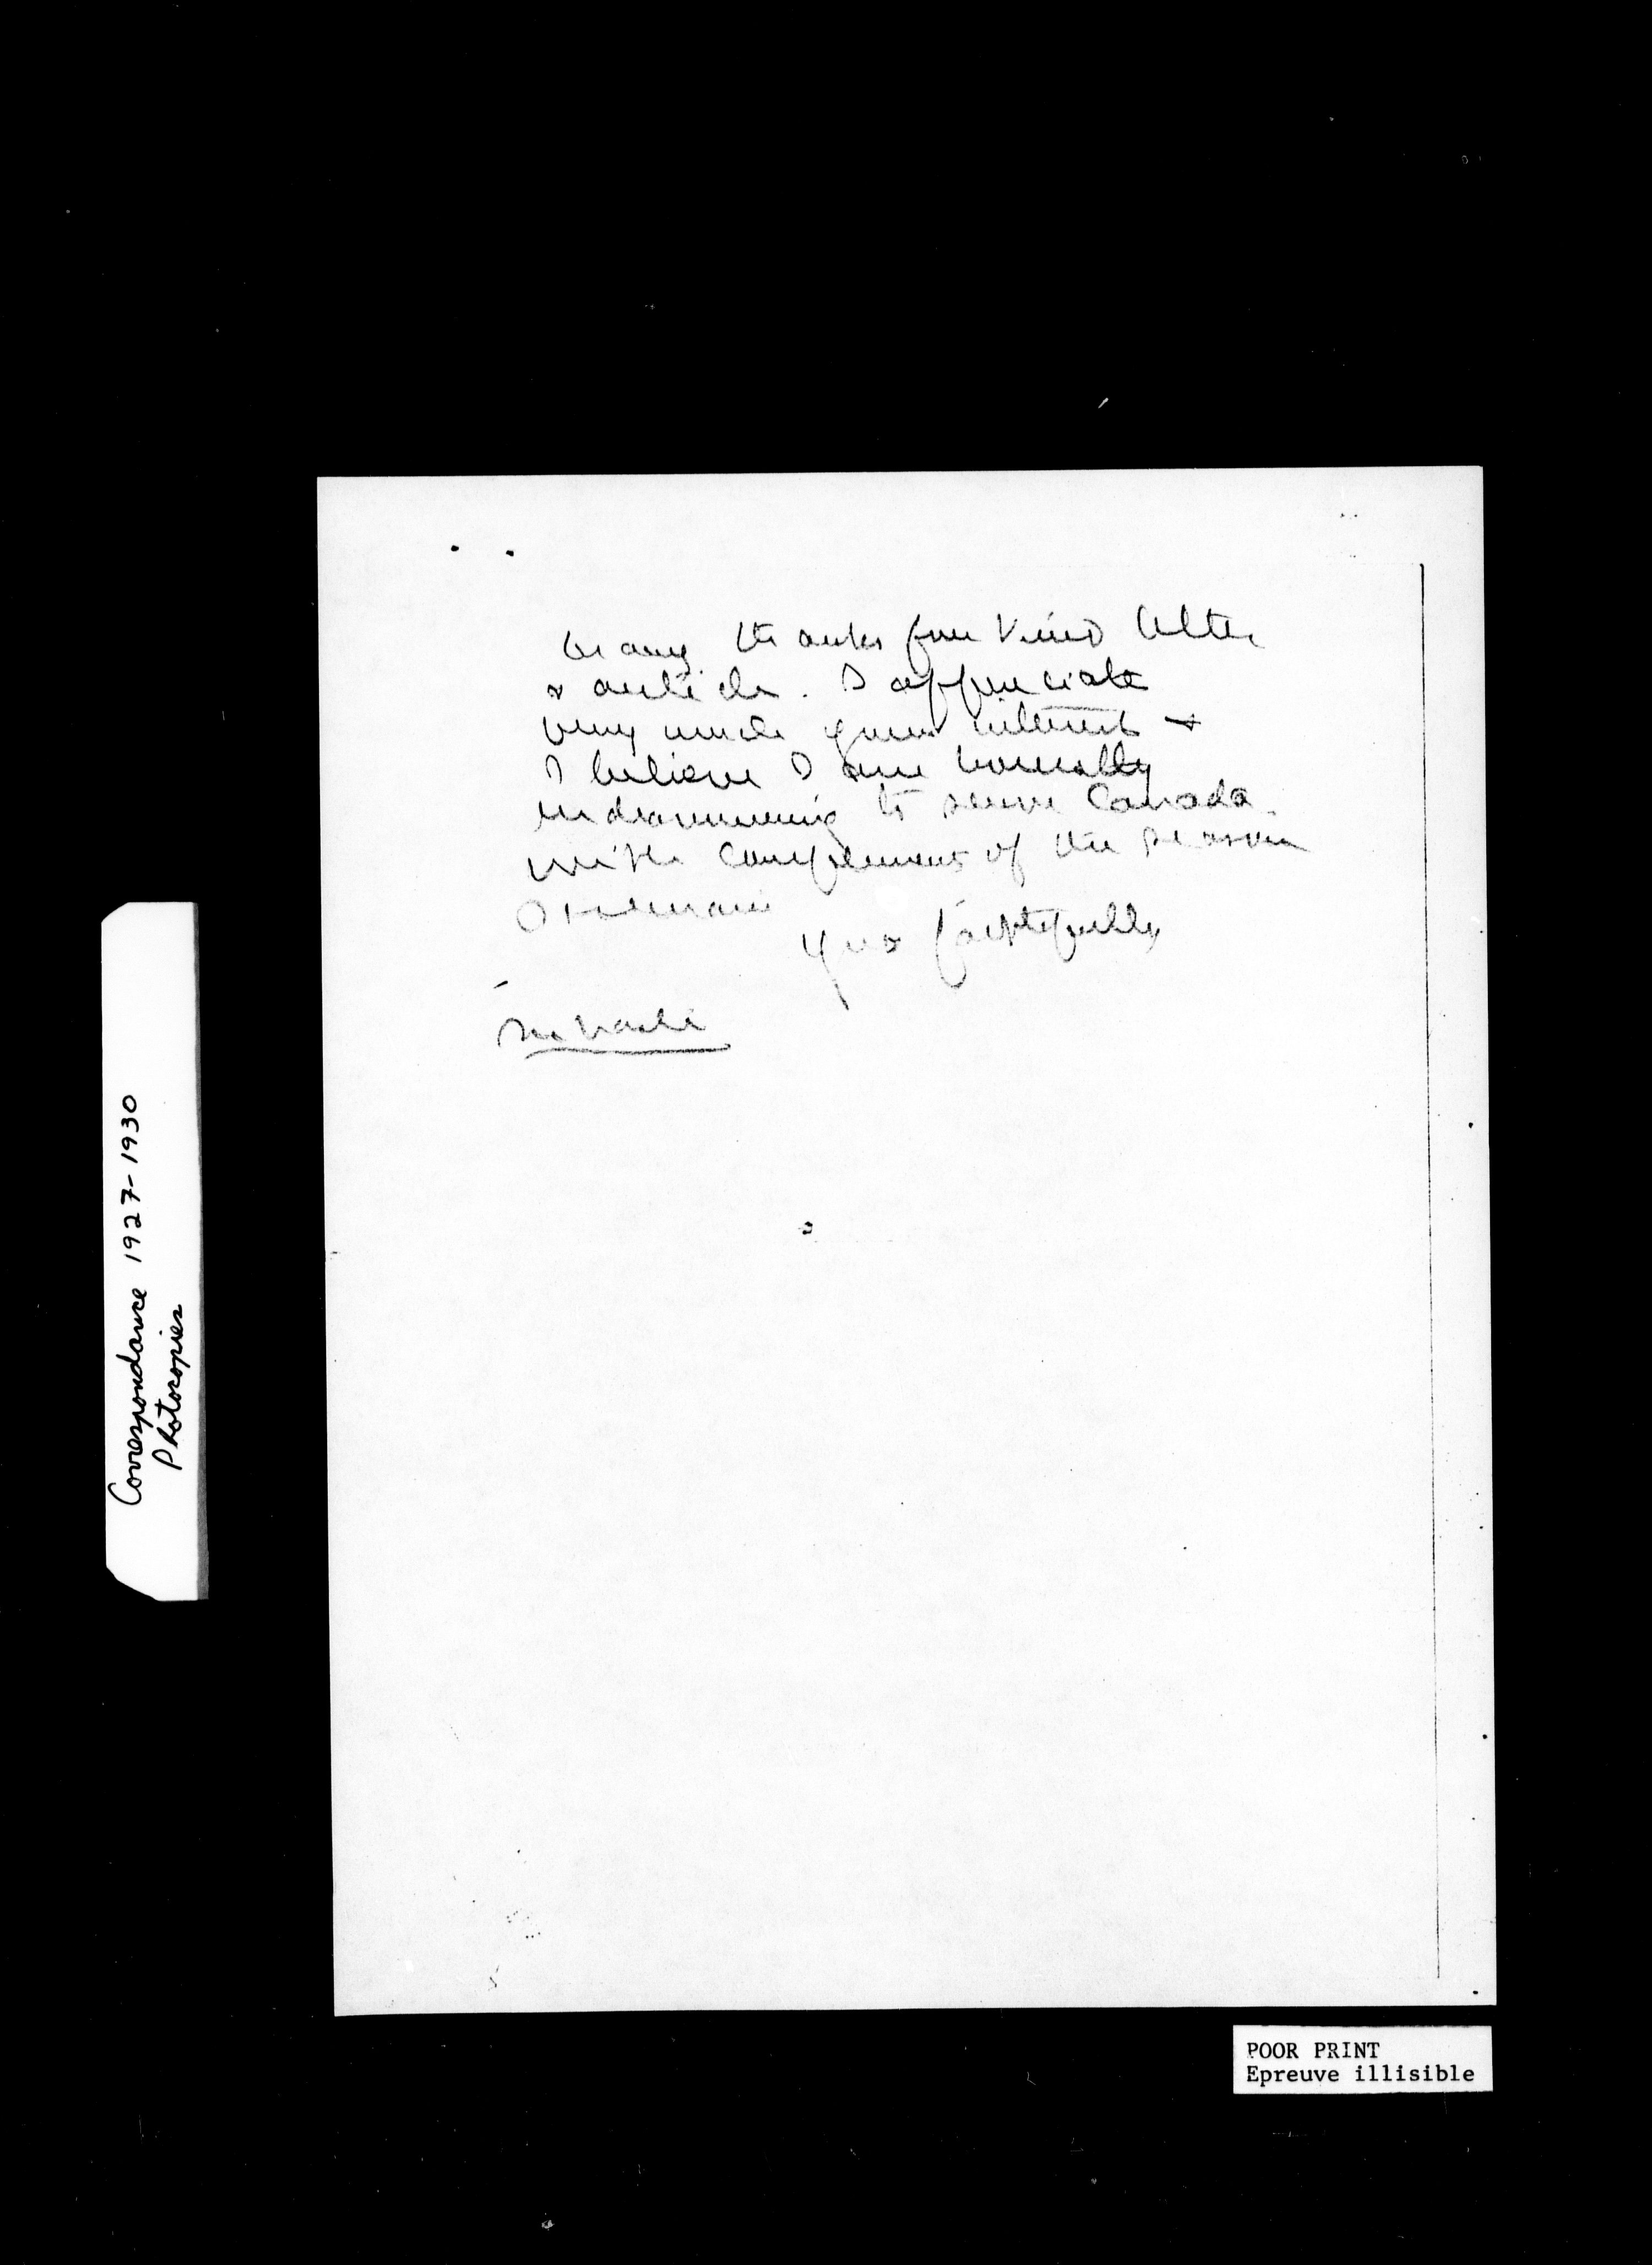 Many thanks for kind letter
& article. I appreciate
very much your interest &
I believe I am honestly
endeavouring to serve Canada.
With compliments of the season
I remain
Yrs faithfully
Correspondance 1927-1930
Photocopies
POOR PRINT
Epreuve illisible